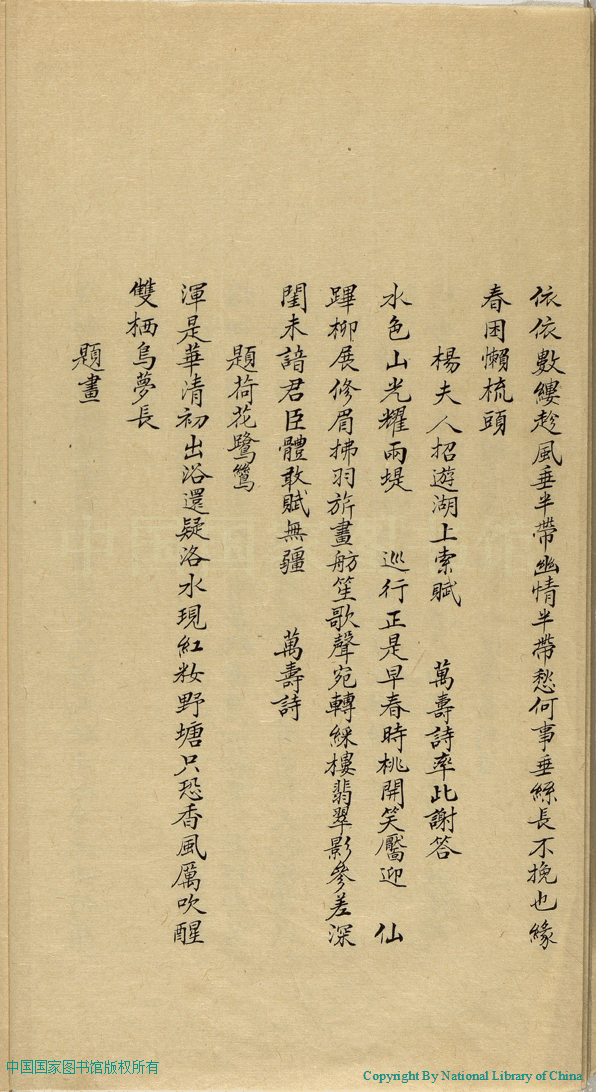 依依數縷趁風垂半帶幽情半帶愁何事垂絲長不挽也緣
春困懶梳頭
楊夫人招遊湖上索賦　萬壽詩率此謝答
水色山光耀兩堤　巡行正是早春時桃開笑靨迎　仙
蹕柳展修眉拂羽旂畫舫笙歌聲宛轉綵樓翡翠影參差深
閨未諳君臣體敢賦無疆　萬壽詩
題荷花鷺鷥
渾是華清初出浴還疑洛水現紅妝野塘只恐香風厲吹醒
雙栖鳥夢長
題畫
中国国家图书馆版权所有
Copyright By National Library of China